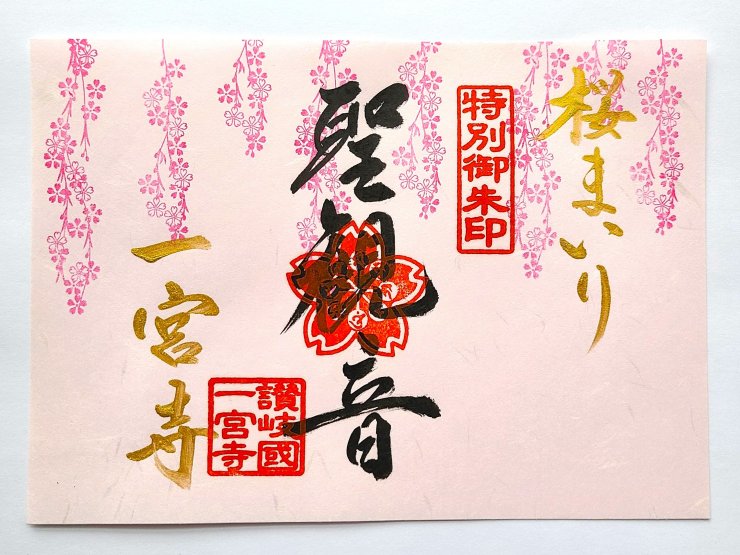 桜まいり
特別御朱印
聖観音
讃岐國
一宮寺
一宮寺